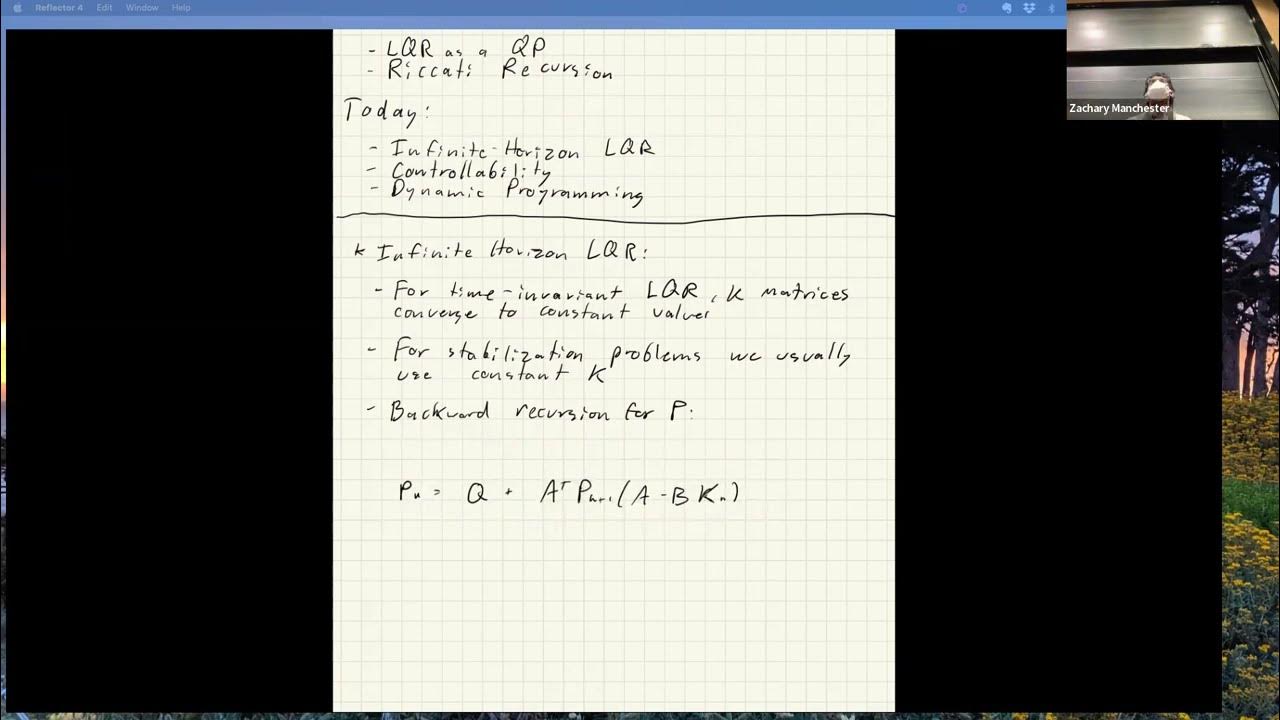 Reflector 4 Edit Window Help
- LQR as a QP
- Riccati Recursion
Today:
- Infinite-Horizon LQR
- Controllability
- Dynamic Programming
* Infinite Horizon LQR:
- For time-invariant LQR, K matrices
converge to constant values
- For stabilization problems we usually
use constant K
- Backward recursion for P:
Pₙ = Q + AᵀPₙ₊₁(A - B Kₙ)
Zachary Manchester